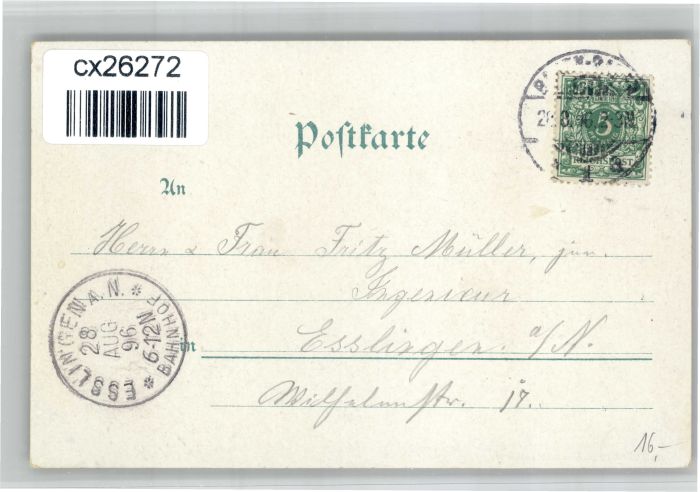 cx26272
Postkarte
5
REICHSPOST
1
An
Herrn & Frau Fritz Müller, jun.
Ingenieur
in Esslingen a/N.
Wilhelmstr. 17.
ESSLINGEN A. N. * BAHNHOF *
28
AUG
96
6-12 N
16,-